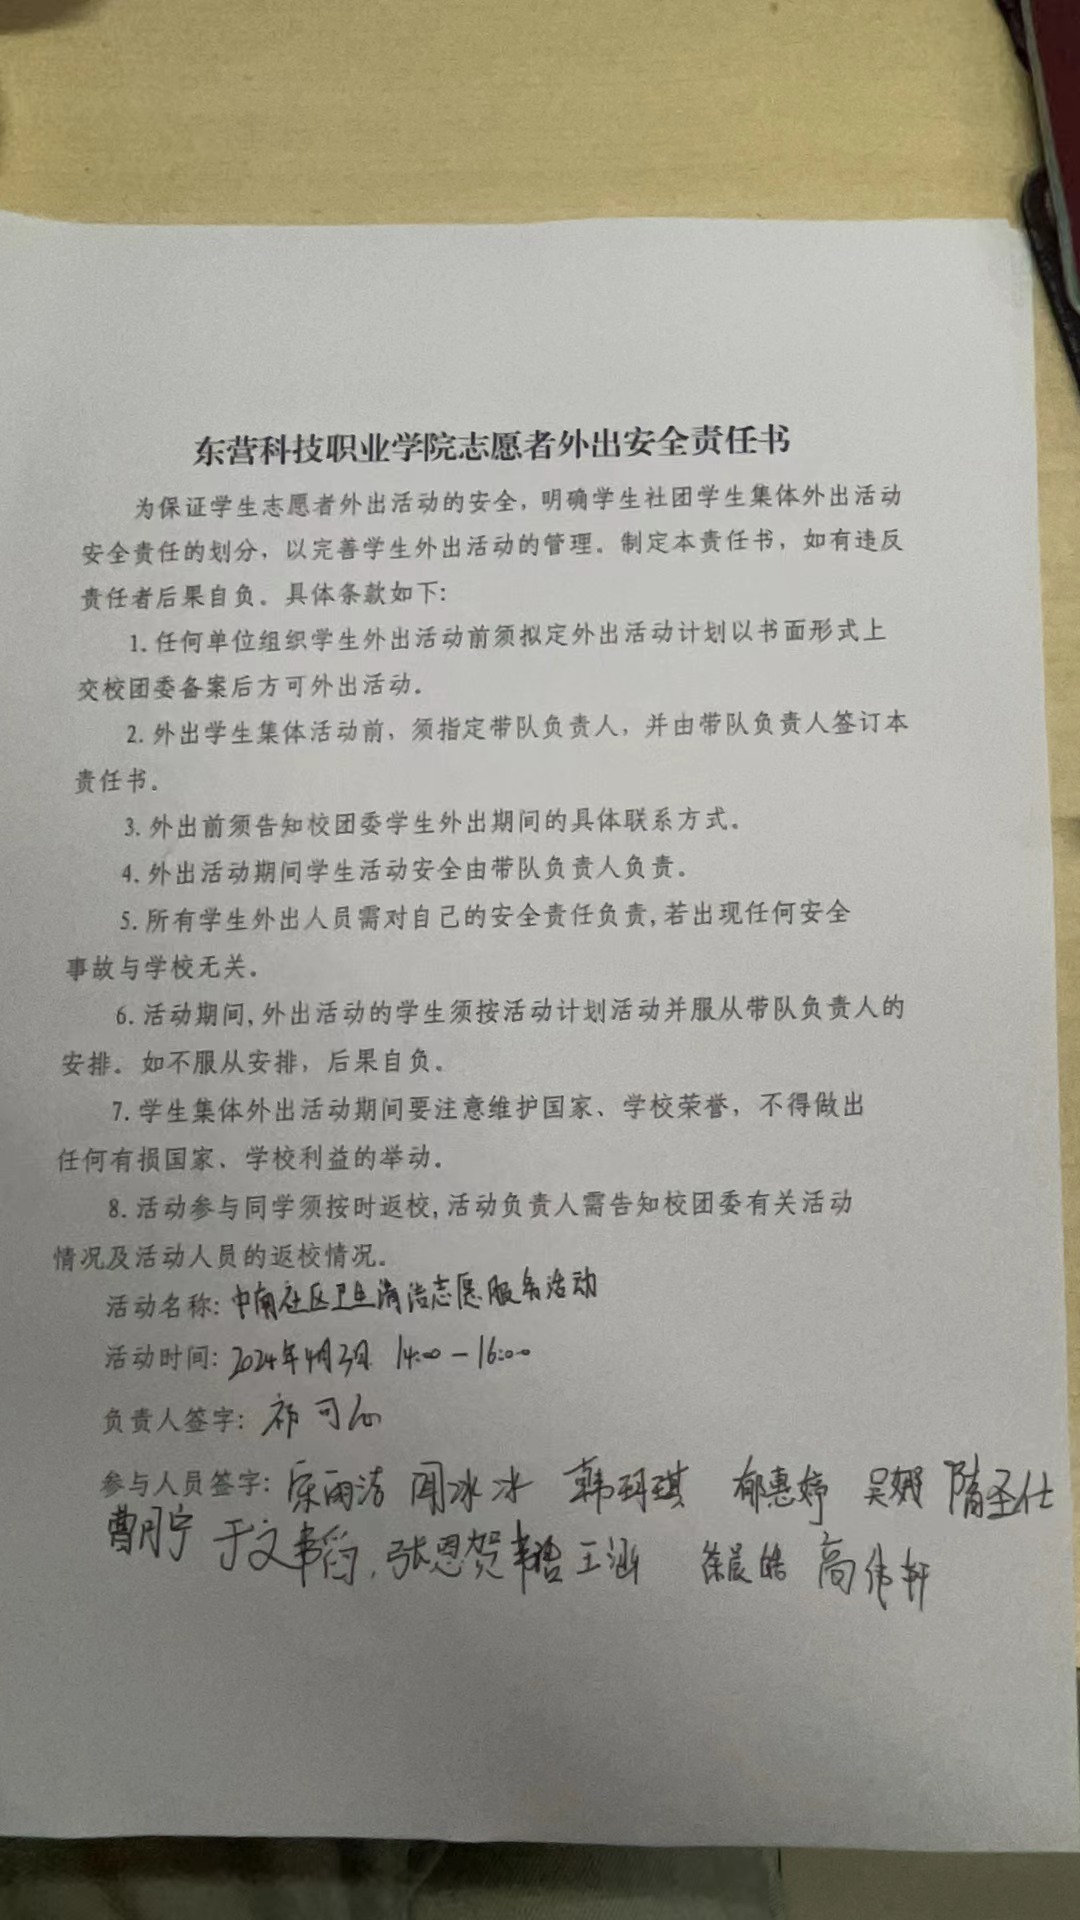 东营科技职业学院志愿者外出安全责任书
为保证学生志愿者外出活动的安全，明确学生社团学生集体外出活动
安全责任的划分，以完善学生外出活动的管理。制定本责任书，如有违反
责任者后果自负。具体条款如下：
1.任何单位组织学生外出活动前须拟定外出活动计划以书面形式上
交校团委备案后方可外出活动。
2.外出学生集体活动前，须指定带队负责人，并由带队负责人签订本
责任书。
3.外出前须告知校团委学生外出期间的具体联系方式。
4.外出活动期间学生活动安全由带队负责人负责。
5.所有学生外出人员需对自己的安全责任负责,若出现任何安全
事故与学校无关。
6.活动期间,外出活动的学生须按活动计划活动并服从带队负责人的
安排。如不服从安排，后果自负。
7.学生集体外出活动期间要注意维护国家、学校荣誉，不得做出
任何有损国家、学校利益的举动。
8.活动参与同学须按时返校,活动负责人需告知校团委有关活动
情况及活动人员的返校情况。
活动名称：中南社区卫生清洁志愿服务活动
活动时间：2024年4月3日 14:00—16:00
负责人签字：祁可心
参与人员签字：宋雨洁 闻冰冰 韩玥琪 郁惠婷 吴娜 隋圣仕
曹月宁 于文韬，张恩贺 王涵 徐晨皓 高伟轩